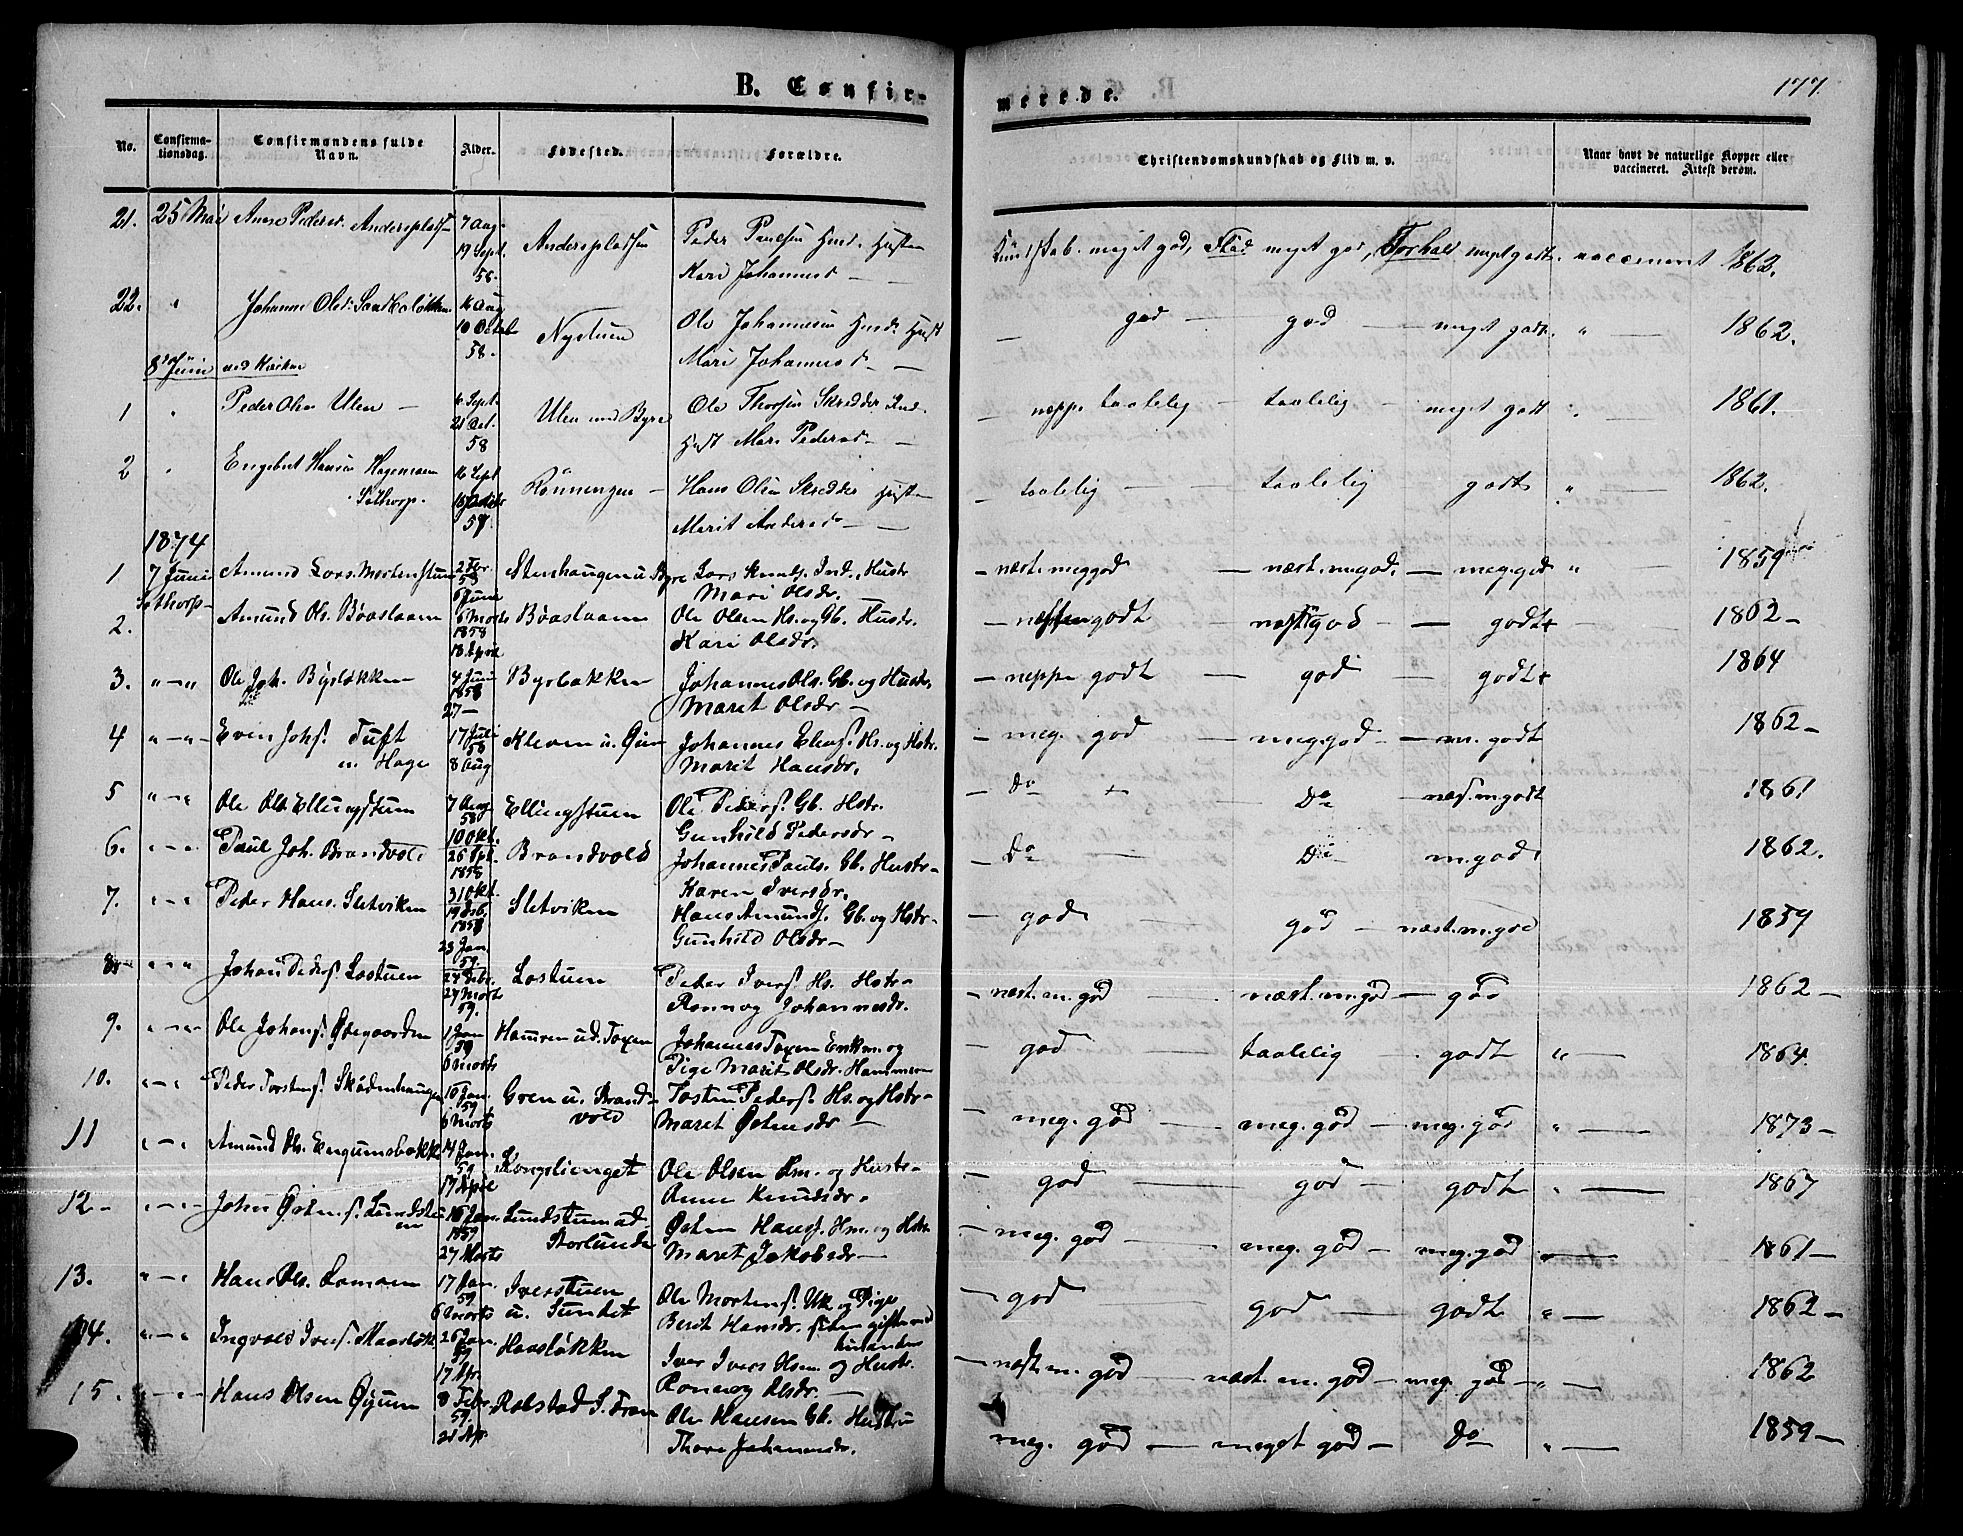 B. Confir-
merede.
177.
No.
Confirma-
tionsdag.
Confirmandens fulde
Navn.
Alder.
Fødested.
Forældre.
Christendomskundskab og Flid m. v.
Naar havt de naturlige Kopper eller
vaccineret. Attest derom.
21. 25 Mai Anne Pedersd. Anderspladsen 7 Aug. 19 Sept. 58. Anderspladsen Peder Paulsen Hustru
Kari Johannesd —
Kundskab. meget god, Flid meget god, Forhold meget godt. vaccineret 1862.
22. " Johanne Olsd. 16 Aug 10 Octob 58. Nystuen Ole Johannesen Hust
Mari Johannesd — —
— god — god — meget godt. " — 1862.
8de Juni ved Kirken
1 " Peder Olsen Ulen — 6 Sept. 21 Oct. 58 Ulen Ole Thorsen Skredder Ind.
Hust Mari Pedersd — —
— neppe taalelig — taalelig — meget godt " — 1861.
2 " Engebret Hansen Hagemoen
Sethorp. 16 Sept 58. Rønningen — Hans Olsen Skredder Hustru
Marit Andersd — —
— taalelig — — taalelig godt " — 1862.
1874
1 7 Juni Amund Lars. Mortenstuen 2 Febr. 58 6 Juni Stenhaugen u. Byre Lars Knuds. Ind., Hustr
Mari Olsdr. —
— næst. meg god — næst. m. god. — meg. god " — 1859
Sethorp—
2. Amund Ols. Braastaaen 6 Marts 1858 18 April Braastaaen Ole Olsen Hs. og Gb. Hustr.
Kari Olsdr.
— godt næst god — — godt — 1862 —
3. " — " Ole Joh. Byrløkken 4 Juni 1858 27 — Byrbakken Johannes Ols. Gb. og Hustr.
Marit Olsdr —
— neppe godt — god — godt 1864
4 " — " — Even Johs. Tuft
u. Hage 17 Juli 58 8 Aug Kleven u. Johannes Elias. Hs. og Hstr.
Marit Hansdr.
— meg. god — meg. god — — m. godt 1862 —
5 " — " Ole Ols Ellingstuen 7 Aug 58 10 Okt. Ellingstuen Ole Peders. Gb. Hstr.
Gunhild Pedersdr —
— Do Do — næst. m. godt 1861
6. " — " Paul Joh. Brandvold 26 Spt. 1858 31 Okt. Brandvold Johannes Pauls. Gb. Hustr —
Karen Iversdr.
— Do — Do m. god. 1862.
7. " — " Peder Hans. Sletviken 19 Dsb. 1858 23 Jan 59. Sletviken Hans Amunds. Gb. og Hstr —
Gunhild Olsdr —
— god — god — næst. m. god 1859
8. " — " Johan Peders. Lostuen 24 Febr. 27 Marts 59. Lostuen Peder Ivers. Hs. Hstr —
Rønnog Johannesdr.
— næst. m. god — næst. m. god — god 1862 —
9. " — " Ole Johans. Ødegaarden 1 Jan 59 6 Marts Hamren ud. Toxen Johannes Toxen Enkm. og
Pige Marit Olsdr. Hammeren
— god — taalelig — godt " — 1864.
10. " — " Peder Torstens. Skådenhaugen 10 Jan. 59 6 Marts Gren u. Brand
vold Tosten Peders. Hs. og Hstr —
Marit Østensdr —
— meg. god — meg. god — meg. god " — 1873 —
11 " — " Amund Ols. Engumsbakk 14 Jan. 59 17 April Konglienget Ole Olsen Hm. og Hustr —
Anne Knudsdr —
— god — god — godt " — 1867
12 — " — " — John Østens. Lundstu
en 16 Jan. 1859 27 Marts Lundstuen ud.
Storlunde Østen Hans. Hm. og Hstr.
Marit Jakobsdr —
— meg. god — meg. god — meg. god — 1861 —
13. " — " Hans Ols. Lomoen 17 Jan. 59 6 Marts Iverstuen
u. Sundet Ole Mortens. Uk. og Pige
Berit Hansdr. siden gifte med
hinanden
— god — god — godt " — 1862 —
14. " — " Ingvald Ivers. Maasløkk 26 Jan. 59 17 Apr. Haasløkken Iver Ivers Hsm. og Hustr.
Rønnog Olsdr. —
— næst. m. god — næst. m. god — meg. god — " — 1862
15. " — " Hans Olsen Øyum 8 Febr. 59. 21 Apr. Robstad S. Fron Ole Hansen Gb. Hustru
Thore Johannesdr.
meg. god — meget god — Do " — 1859 —